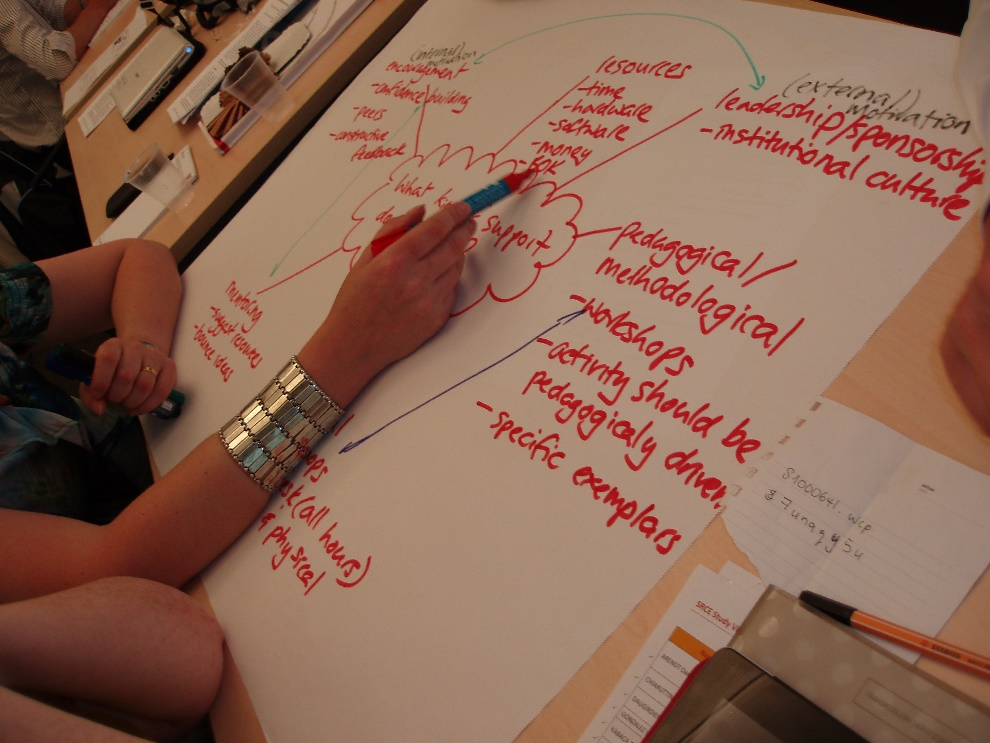 (internal)
motivation
encouragement
- confidence building
- peers
- constructive
feedback
resources
- time
- hardware
- software
- money
(external)
motivation
leadership/sponsorship
- institutional culture
What
support
pedagogical/
methodological
- workshops
- activity should be
pedagogicaly driven
- specific exemplars
mentoring
- suggest resources
- bounce ideas
(all hours)
& physical
S1000641.wcp
SRCE Study